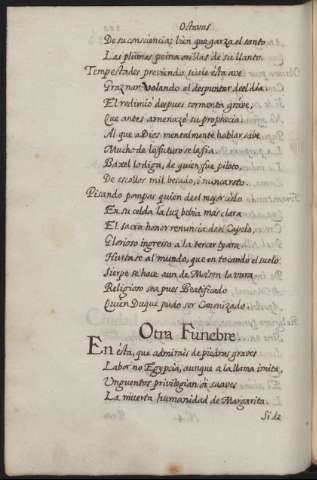 Octavas
De su consciencia; bien que garza el santo
Las plumas peina orillas de su llanto.
Tempestades previendo, suele esta ave
Graznar Volando al despuntar del dia.
El redimiò despues tormenta grave,
Que antes amenazò su prophecia.
Al que a Dios mentalmente hablar sabe
Mucho de lo futuro se le fia.
Baxel lo diga, de quien fue piloto,
De escollos mil besado, i nunca roto.
Pisando pompas quien del mejor cielo
En su celda la luz bebia mas clara
El sacro honor renuncia del Capelo,
Glorioso ingresso a la tercer tyara.
Hurtase al mundo, que en tocando el suelo
Sierpe se hace aun de Moisen la vara
Religioso sea pues Beatificado
Quien Duque pudo ser Canonizado.
Otra Funebre.
En esta, que admirais de piedras graves
Labor no Egypcia, aunque a la llama imita,
Unguentos privilegian oi suaves
La muerta humanidad de Margarita.
Si de